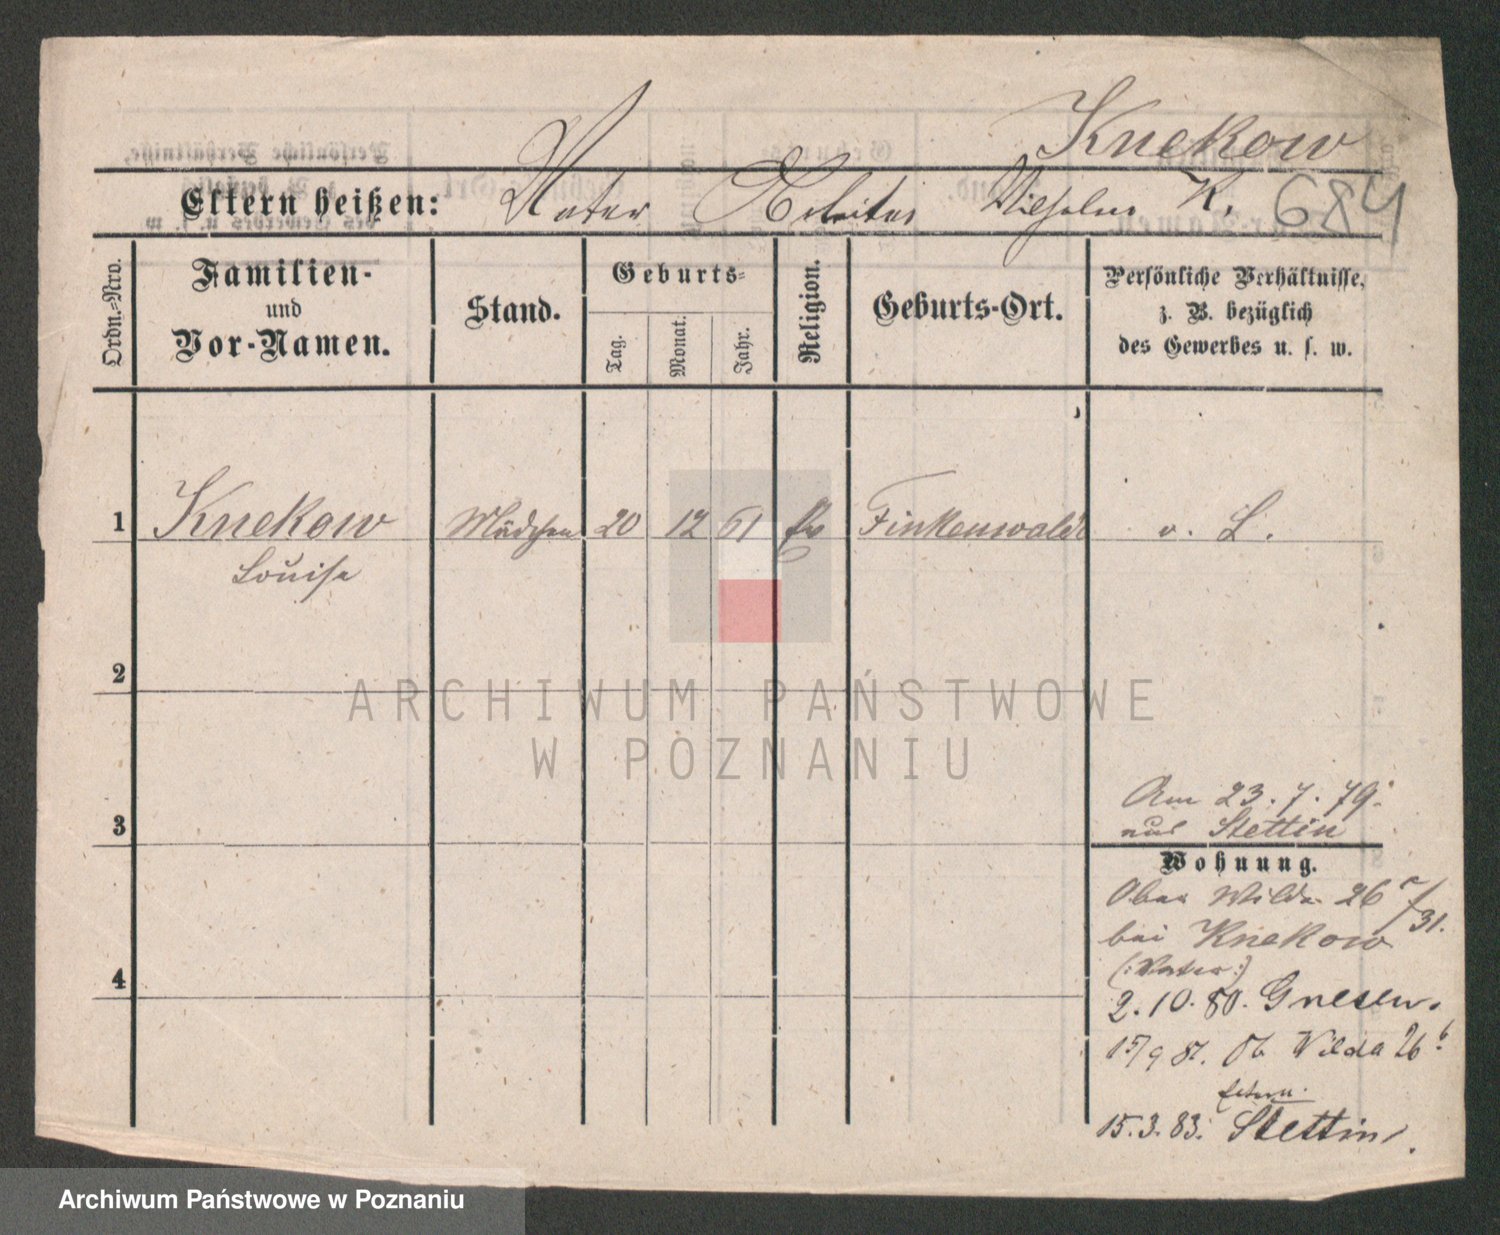 Knekow
Eltern heißen: Vater Arbeiter Wilhelm K. 684
Ordn.=Nro.
Familien-
und
Vor-Namen.
Stand.
Geburts=
Tag.
Monat.
Jahr.
Religion.
Geburts-Ort.
Persönliche Verhältnisse,
z. B. bezüglich
des Gewerbes u. s. w.
1 Knekow Mädchen 20 12 61 Ev Finkenwalde v. L.
Louise
2
3
4
Am 23. 7. 79.
aus Stettin
Wohnung.
Ober Wilda 26 a/31.
bei Knekow
(:Vater:)
2. 10. 80. Gnesen.
15/9 81. Ob Wilda 26 b.
Eltern.
15. 3. 83. Stettin.
ARCHIWUM PAŃSTWOWE
W POZNANIU
Archiwum Państwowe w Poznaniu